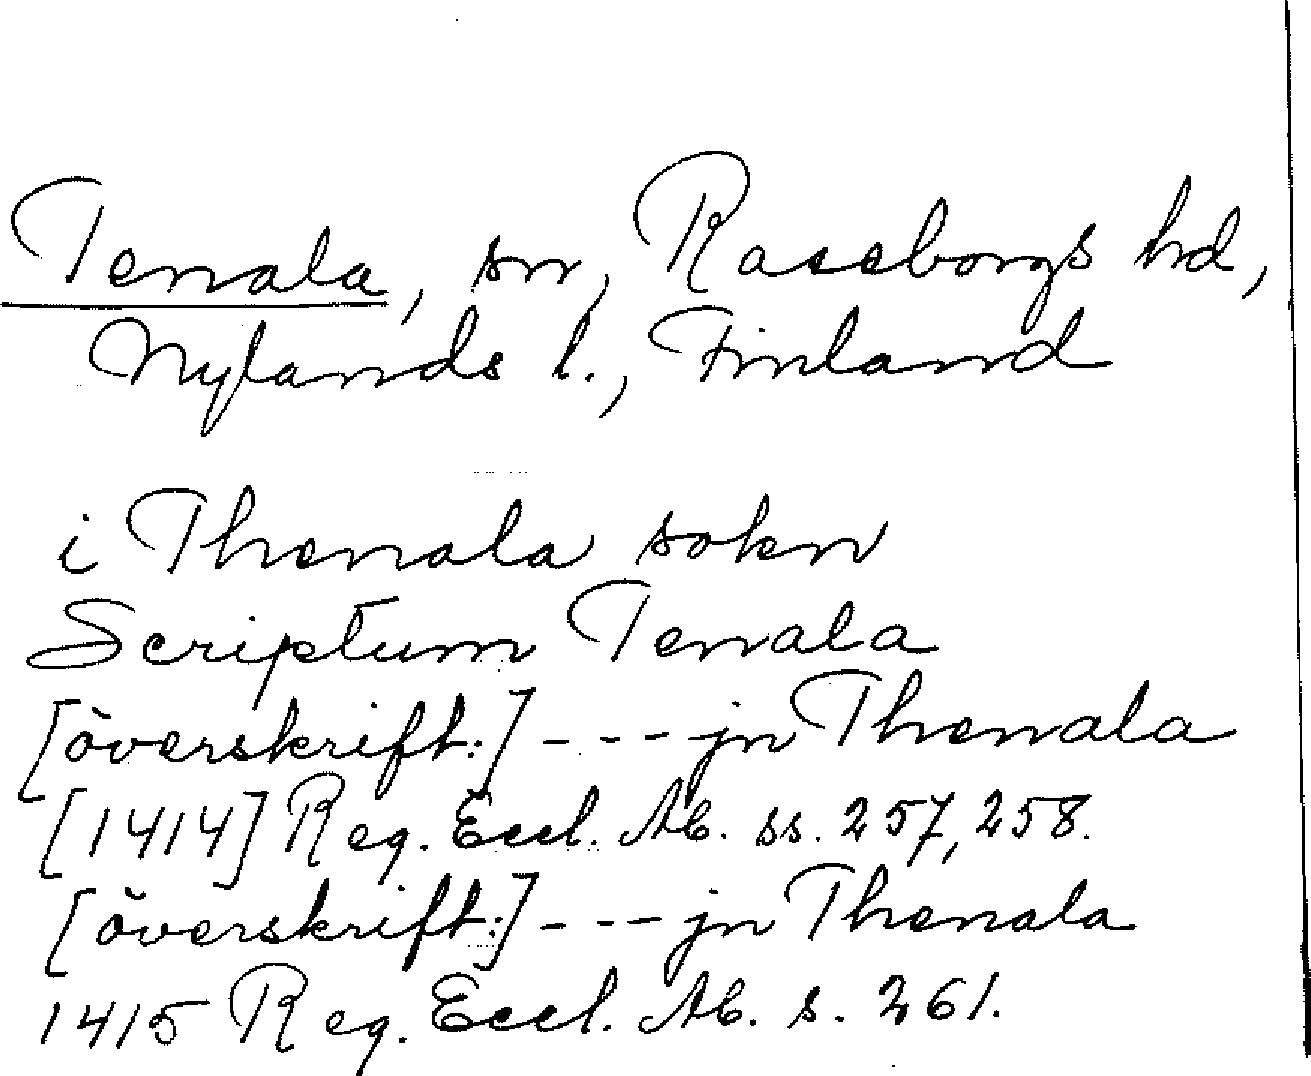 Tenala, sn, Raseborgs hd,
Nylands l., Finland
i Thenala sokn
Scriptum Tenala
[överskrift:] - - - jn Thenala
[1414] Reg. Eccl. Ab. ss. 257, 258.
[överskrift:] - - - jn Thenala
1415 Reg. Eccl. Ab. s. 261.